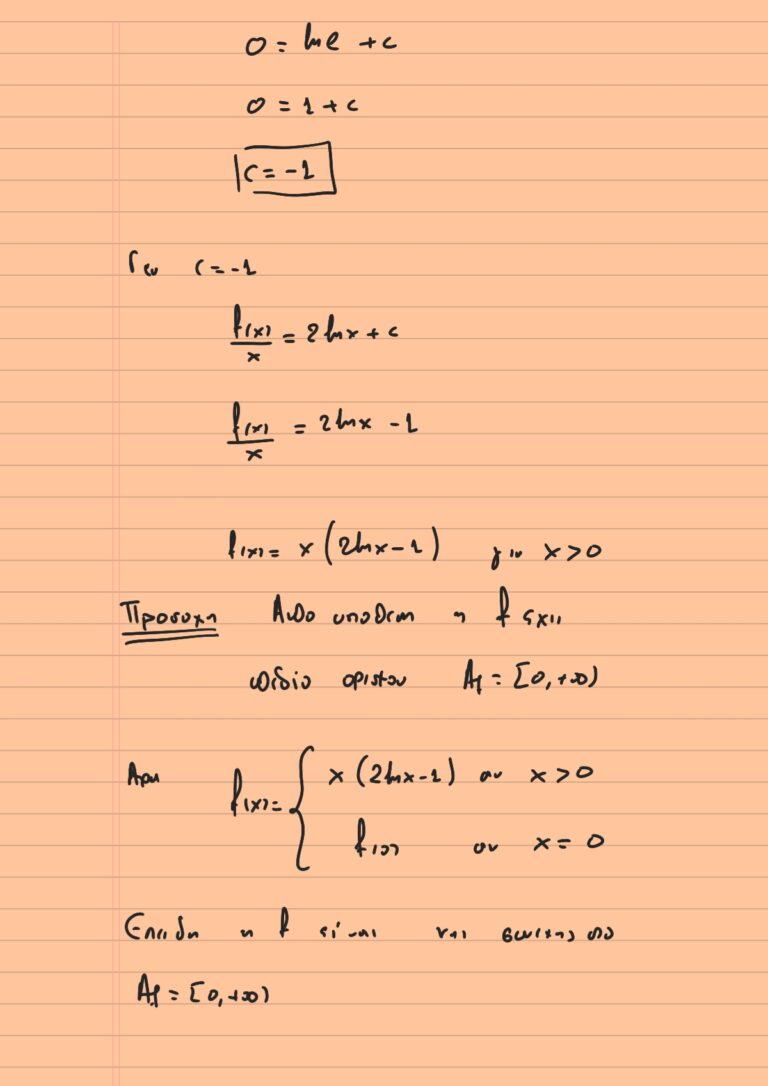 0 = ln e + c
0 = 1 + c
c = -1
Για c = -1
f(x)/x = 2lnx + c
f(x)/x = 2lnx - 1
f(x) = x(2lnx - 1) για x > 0
Προσοχη Απο υποθεση η f εχει
πεδιο ορισμου Af = [0, +∞)
Αρα f(x) = { x(2lnx-1) αν x > 0
f(0) αν x = 0
Επειδη η f είναι και συνεχης στο
Af = [0, +∞)